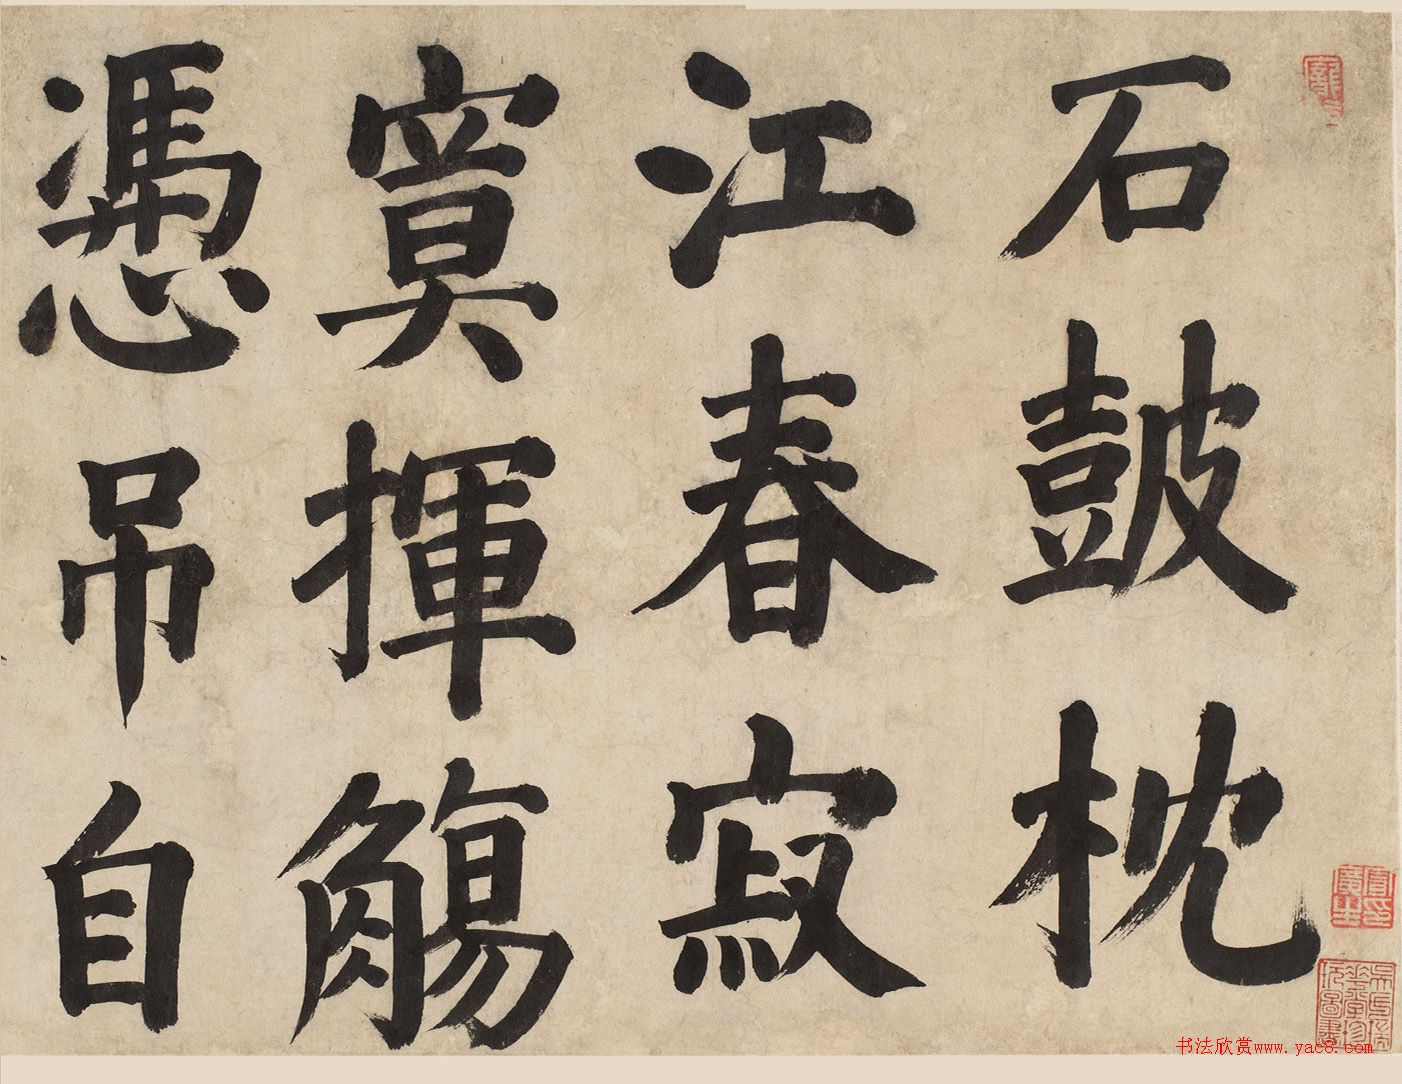 石鼓枕
江春寂
寞揮觴
憑吊自
书法欣赏www.yac8.com